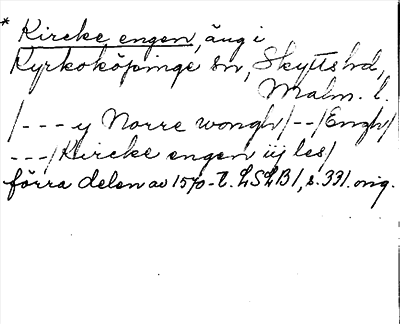 * Kircke engen, äng i
Kyrkoköpinge sn, Skytts hd,
Malm. l.
/--- y Norre wongh/--/Engh/
---/Kircke engen iij les/
förra delen av 1570-t. LSLB1, s. 331. orig.